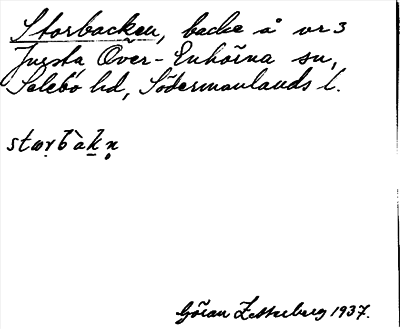 Storbacken, backe å vr 3
Jursta Över-Enhörna sn,
Selebo hd, Södermanlands l.
Göran Zetterberg 1937.